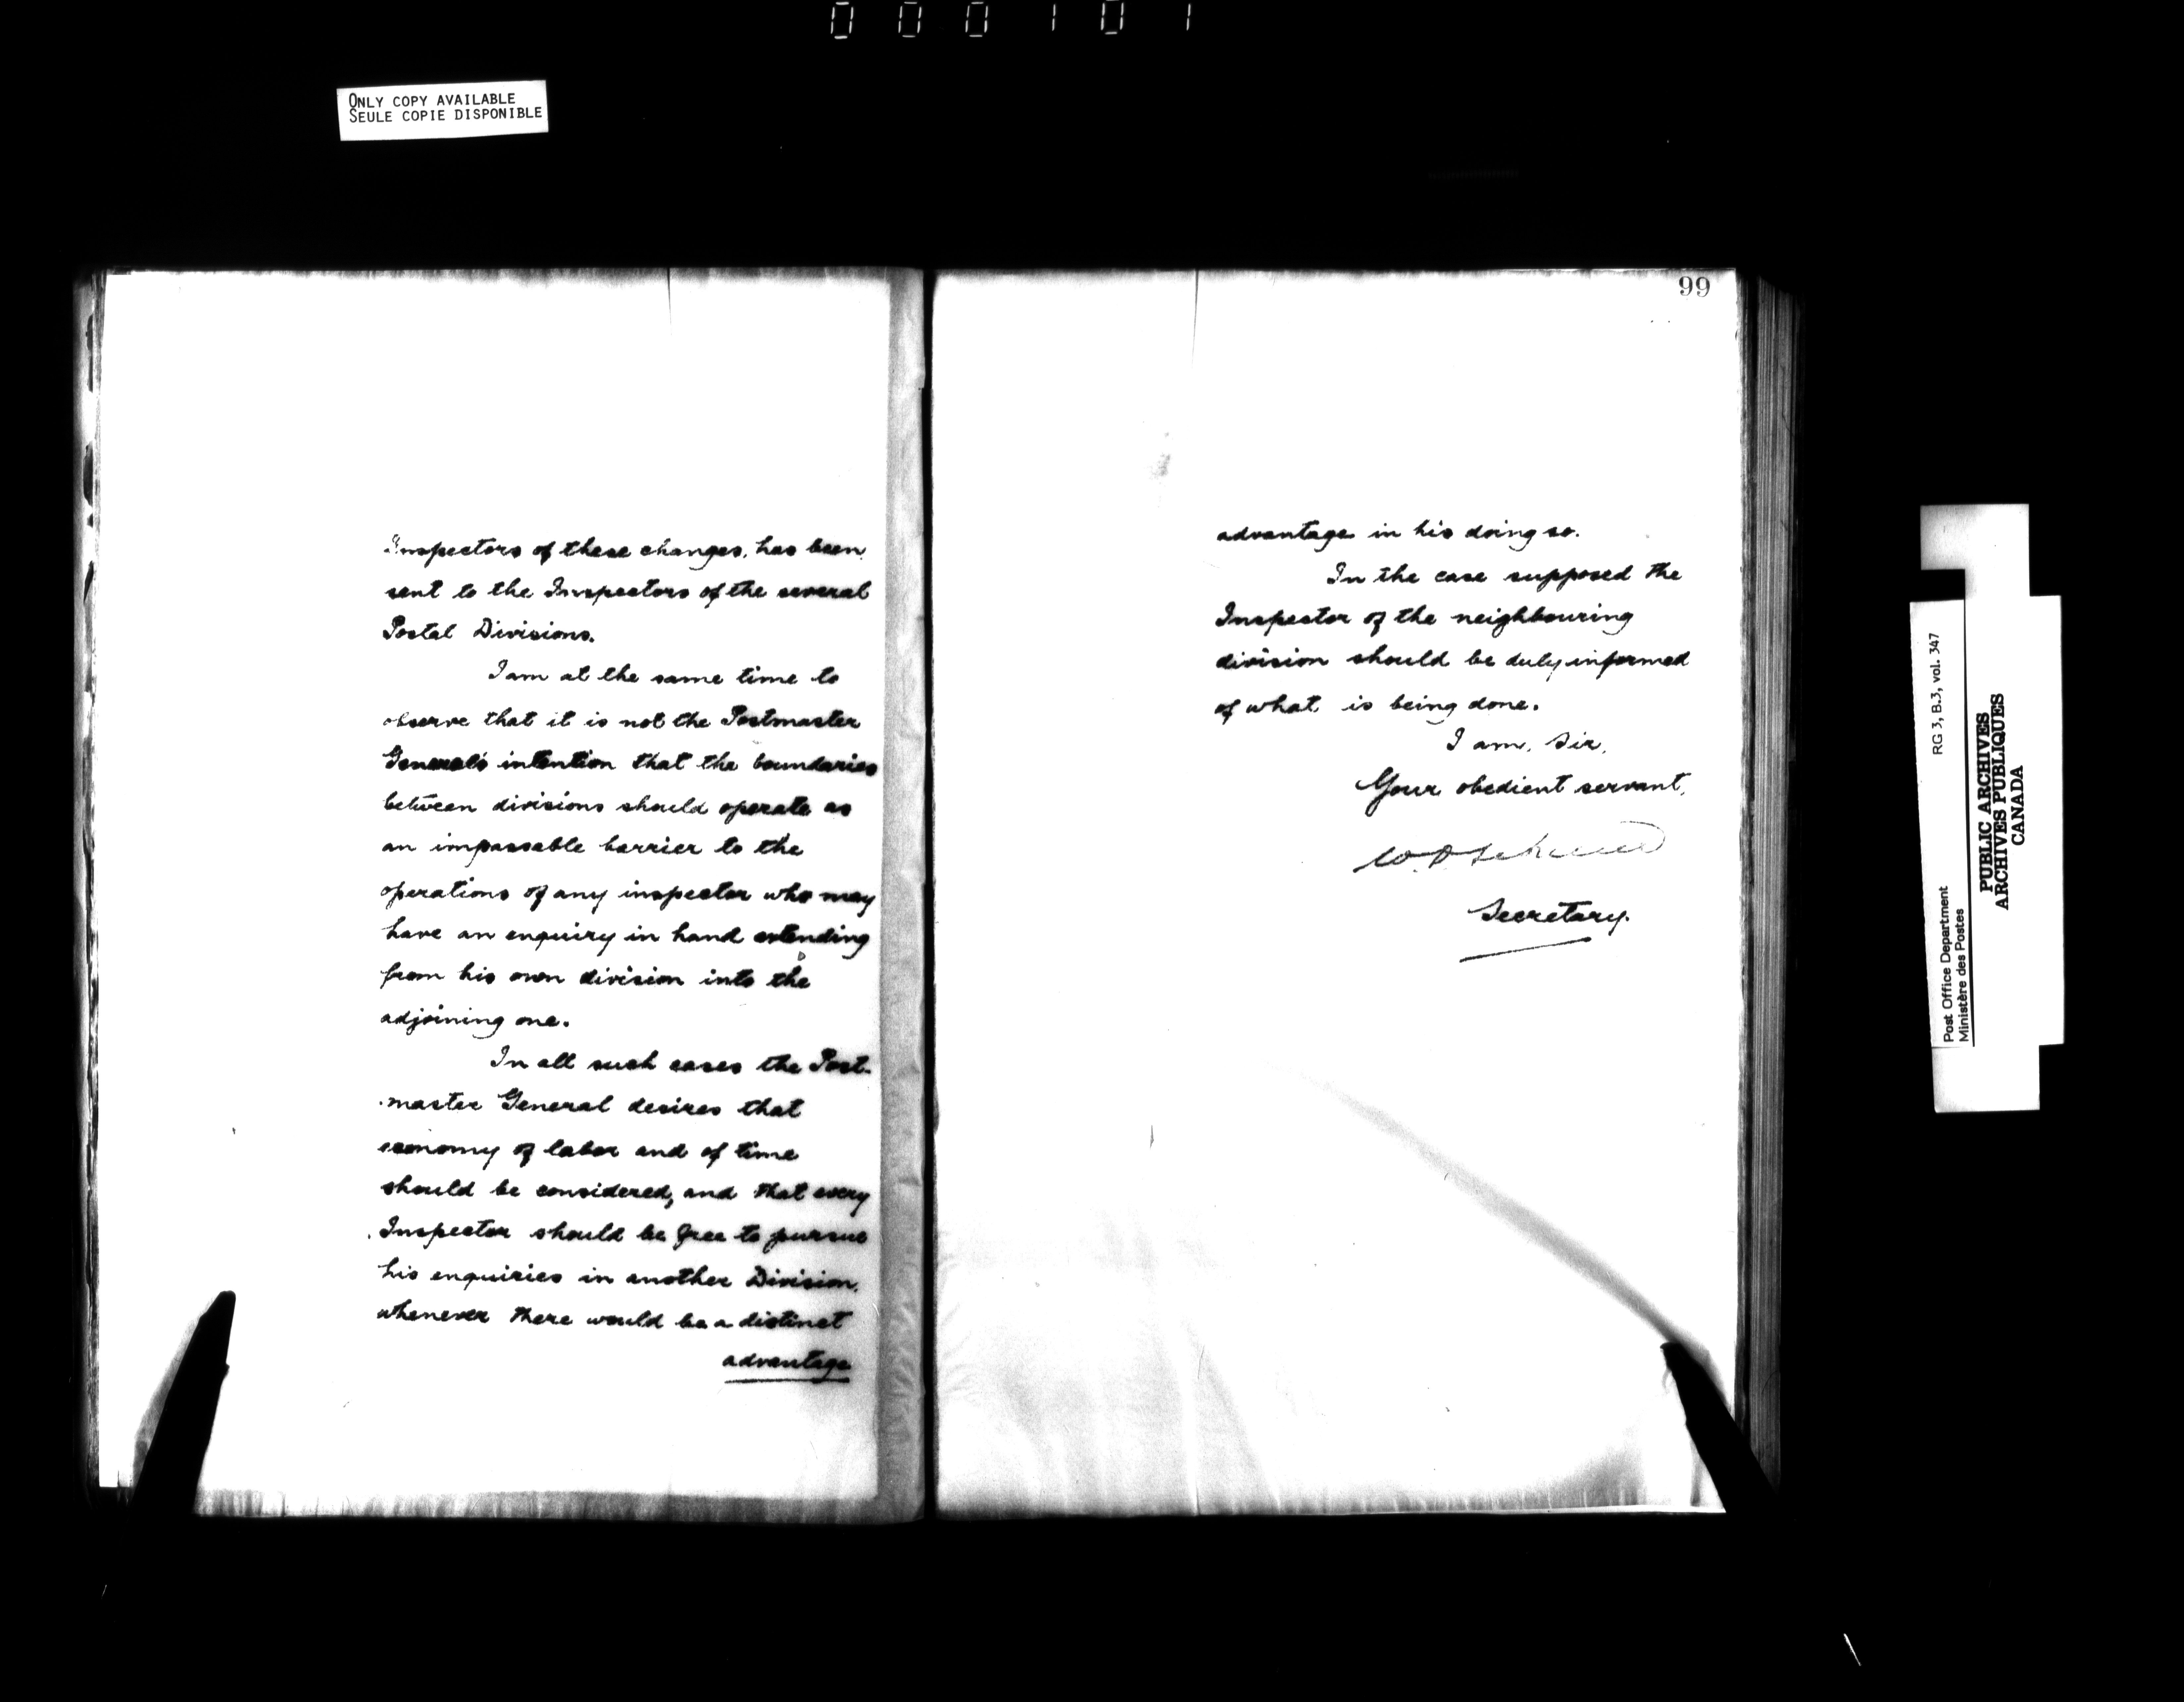 000101
ONLY COPY AVAILABLE
SEULE COPIE DISPONIBLE
Inspectors of these changes, has been
sent to the Inspectors of the several
Postal Divisions.
I am at the same time to
observe that it is not the Postmaster
General's intention that the boundaries
between divisions should operate as
an impassable barrier to the
operations of any inspector who may
have an enquiry in hand extending
from his own division into the
adjoining one.
In all such cases the Post-
master General desires that
economy of labor and of time
should be considered, and that every
Inspector should be free to pursue
his enquiries in another Division,
whenever there would be a distinct
advantage
99
advantage in his doing so.
In the case supposed the
Inspector of the neighbouring
division should be duly informed
of what is being done.
I am, Sir,
Your obedient servant,
Secretary.
Post Office Department
Ministère des Postes
RG 3, B.3, vol. 347
PUBLIC ARCHIVES
ARCHIVES PUBLIQUES
CANADA